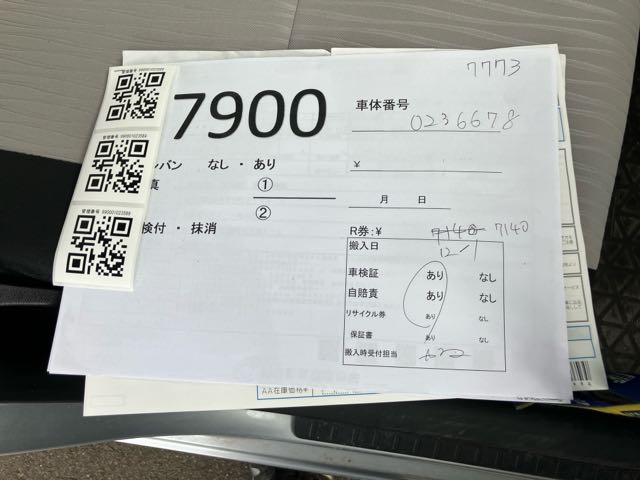 7773
管理番号 99001023589
7900
車体番号
0236678
管理番号 99001023589
ンバン なし・あり
¥
真 ①
月 日
②
管理番号 99001023589
検付・抹消
R券:¥ 7140 7140
搬入日 12/1
車検証 あり なし
自賠責 あり なし
リサイクル券 あり なし
保証書 あり なし
搬入時受付担当
AA在庫価格¥